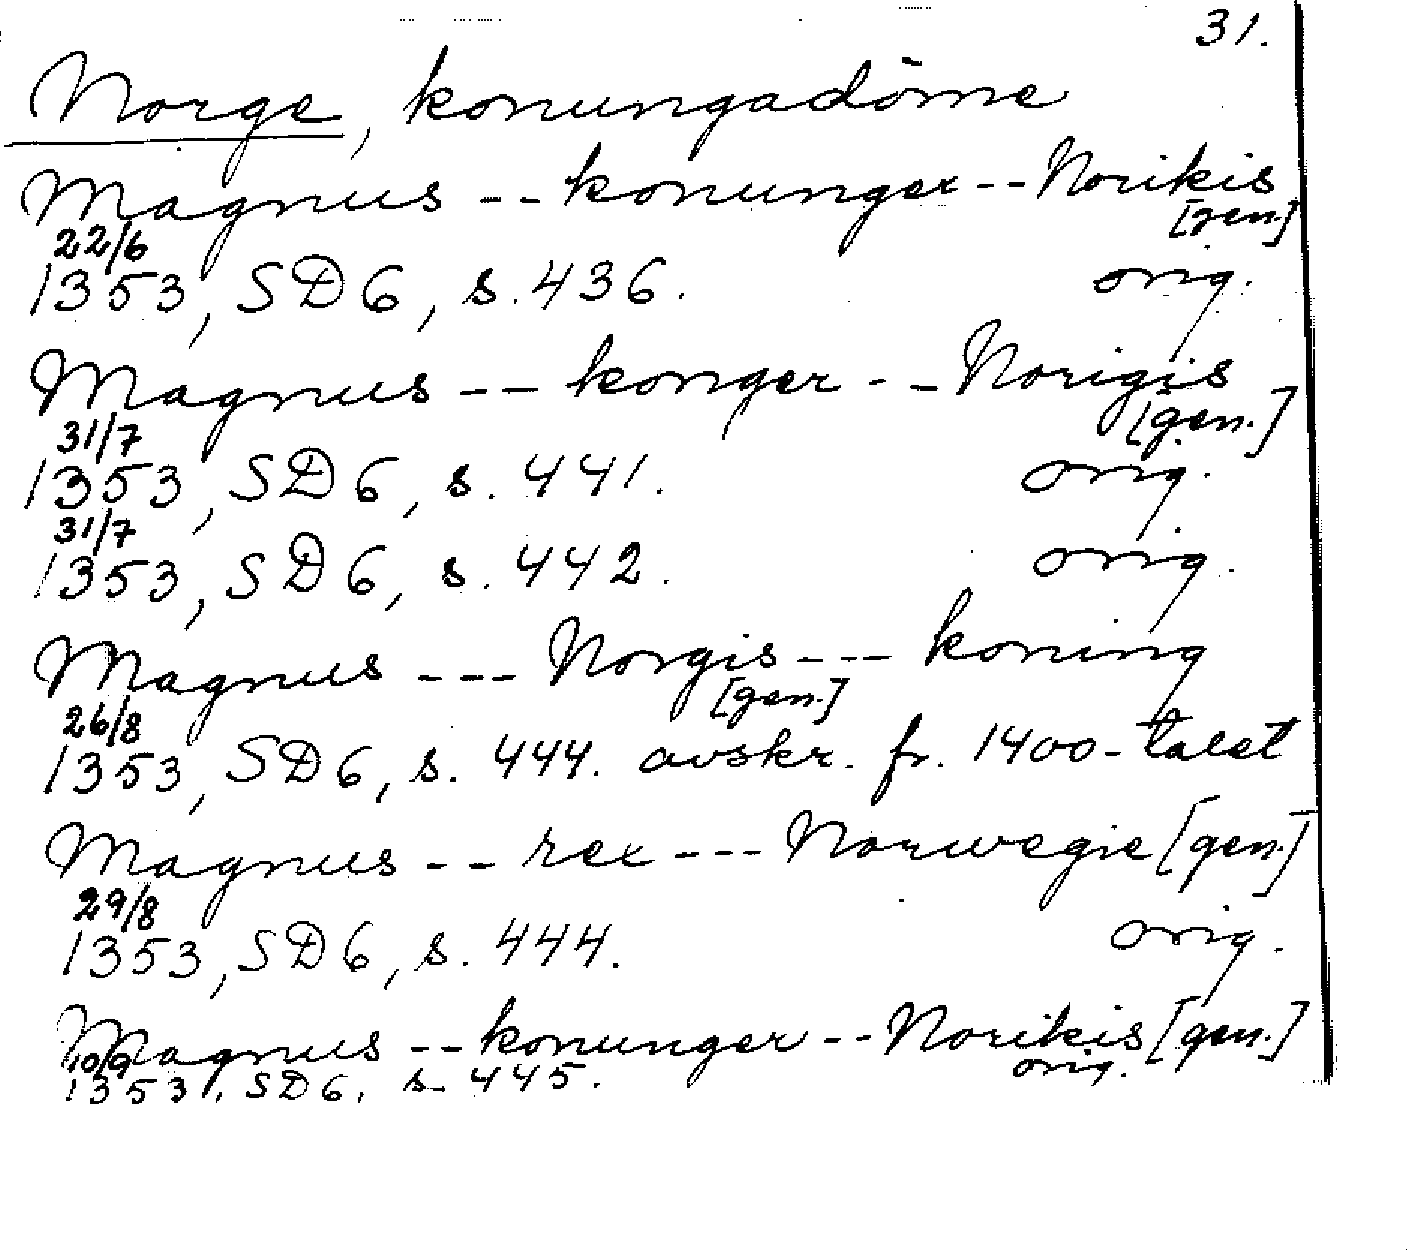 31.
Norge, konungadöme
Magnus -- konunger -- Norikis
[gen.]
22/6
1353, SD 6, s. 436. orig.
Magnus -- konger -- Norigis
[gen.]
31/7
1353, SD 6, s. 441. orig.
31/7
1353, SD 6, s. 442. orig.
Magnus --- Norgis --- koning
[gen.]
26/8
1353, SD 6, s. 444. avskr. fr. 1400-talet
Magnus -- rex --- Norwegie [gen.]
29/8
1353, SD 6, s. 444. orig.
Magnus -- konunger -- Norikis [gen.]
10/9 orig.
1353, SD 6, s. 445.